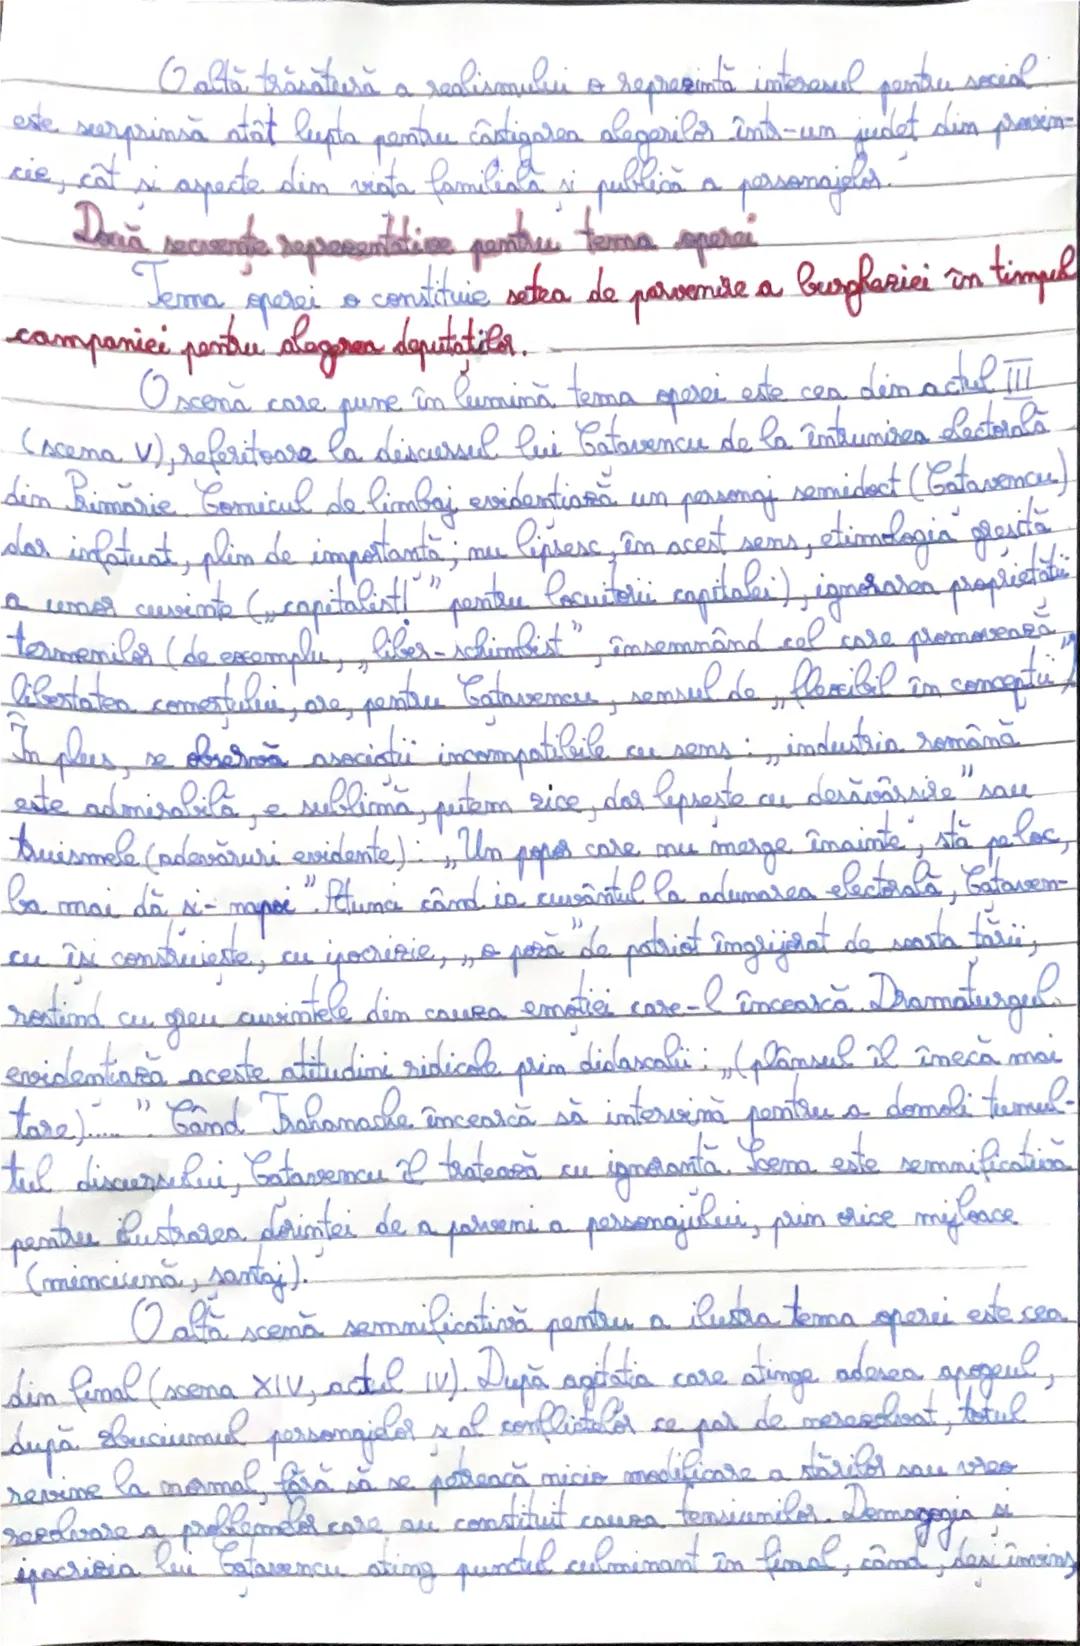 O altă trăsătură a realismului o reprezintă interesul pentru social
este surprinsă atât lupta pentru câștigarea alegerilor într-un județ din provin-
cie, cât și aspecte din viața familială și publică a personajelor.
Două secvențe reprezentative pentru tema operei
Tema operei o constituie setea de parvenire a burgheziei în timpul
campaniei pentru alegerea deputaților.
O scenă care pune în lumină tema operei este cea din actul III
(scena V), referitoare la discursul lui Cațavencu de la întrunirea electorală
din Primărie Comicul de limbaj evidențiază un personaj semidoct (Cațavencu)
dar infatuat, plin de importanță; nu lipsesc, în acest sens, etimologia greșită
a unor cuvinte („capitaliști” pentru locuitorii capitalei), ignorarea proprietății
termenilor (de exemplu, „liber-schimbist”, însemnând cel care promovează
libertatea comerțului, are, pentru Cațavencu, sensul de „flexibil în concepții”)
În plus, se observă asociații incompatibile cu sens: „industria română
este admirabilă, e sublimă, putem zice, dar lepsește cu desăvârșire” sau
truismele (adevăruri evidente): „Un popor care nu merge înainte, stă pe loc,
ba mai dă și-napoi”. Atunci când ia cuvântul la adunarea electorală, Cațaven-
cu își construiește, cu ipocrizie, „o poză” de patriot îngrijorat de soarta țării,
rostind cu greu cuvintele din cauza emoției care-l încearcă. Dramaturgul
evidențiază aceste atitudini ridicole prin didascalii: „(plânsul îl îneacă mai
tare)....”. Când Trahanache încearcă să intervină pentru a domoli tumul-
tul discursului, Cațavencu îl tratează cu ignoranță. Scena este semnificativă
pentru ilustrarea dorinței de a parveni a personajului, prin orice mijloace
(minciună, șantaj).
O altă scenă semnificativă pentru a ilustra tema operei este cea
din final (scena XIV, actul IV). După agitația care atinge adesea apogeul,
după zbuciumul personajelor și al conflictelor ce par de nerezolvat, totul
revine la normal, fără să se petreacă nicio modificare a stărilor sau vreo
rezolvare a problemelor care au constituit cauza tensiunilor. Demagogia și
ipocrizia lui Cațavencu ating punctul culminant în final, când, deși învins,